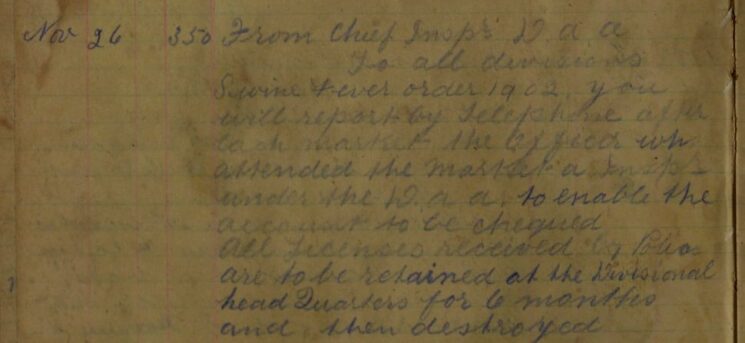 Nov 26 350 From Chief Inspr D a a
To all divisions
Swine Fever order 1902 you
will report by Telephone after
each market the officer who
attended the market a Inspr
under the D. a a. to enable the
account to be chequed
All Licenses received by Police
are to be retained at the Divisional
head Quarters for 6 months
and then destroyed